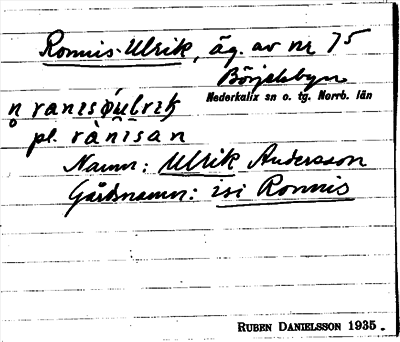 Ronnis-Ulrik, äg. av nr 75
Börjelsbyn
Nederkalix sn o. tg. Norrb. län
pl. rànisan
Namn: Ulrik Andersson
Gårdsnamn: isi Ronnis
RUBEN DANIELSSON 1935.